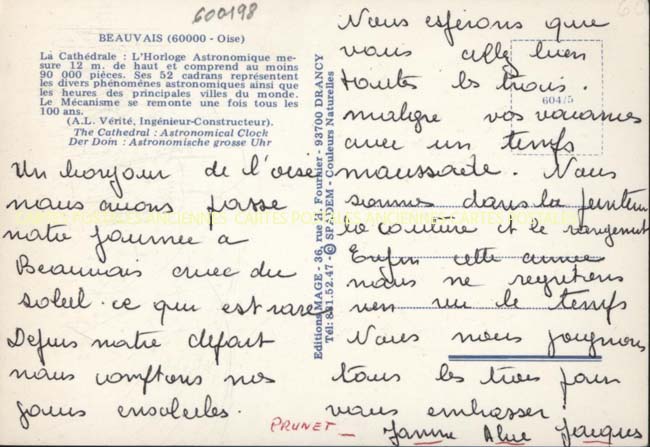 600198
BEAUVAIS (60000 - Oise)
La Cathédrale : L'Horloge Astronomique me-
sure 12 m. de haut et comprend au moins
90 000 pièces. Ses 52 cadrans représentent
les divers phénomènes astronomiques ainsi que
les heures des principales villes du monde.
Le Mécanisme se remonte une fois tous les
100 ans.
(A.L. Vérité, Ingénieur-Constructeur).
The Cathedral : Astronomical Clock
Der Dom : Astronomische grosse Uhr
Un bonjour de l'oise
nous avons passe
notre journee a
Beauvais avec du
soleil. ce qui est rare
Depuis notre depart
nous comptons nos
jours ensoleiles.
Editions MAGE - 36, rue A. Fournier - 93700 DRANCY
Tél: 831.52.47 - © SPADEM - Couleurs Naturelles
604/5
Nous esperons que
vous alle bien
toutes les trois.
malgre vos vacances
avec un temps
maussade. Nous
sommes dans la peinture
la couture et le rangement
Enfin cette annee
nous ne regretons
rien vu le temps
Nous nous joignons
tous les trois pour
vous embrasser
PRUNET
Janine Aline Jacques
CARTES POSTALES ANCIENNES CARTES POSTALES ANCIENNES CARTES POSTALES